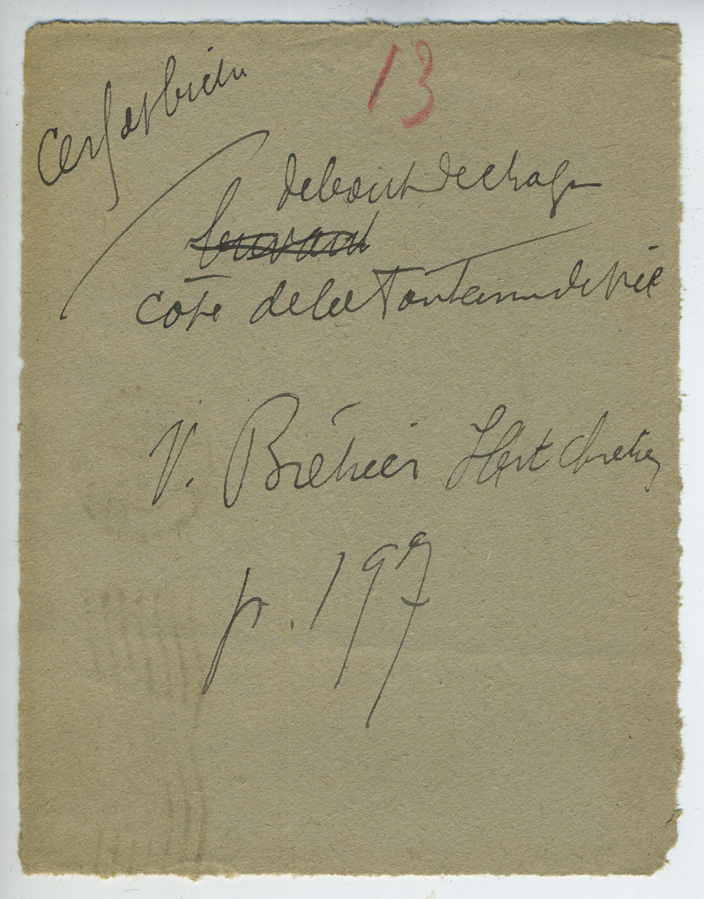 13
Cerf et biche
debout de chaque
buvant
côté de la Fontaine de vie
V. Bréhier l'art chrétien
p. 197